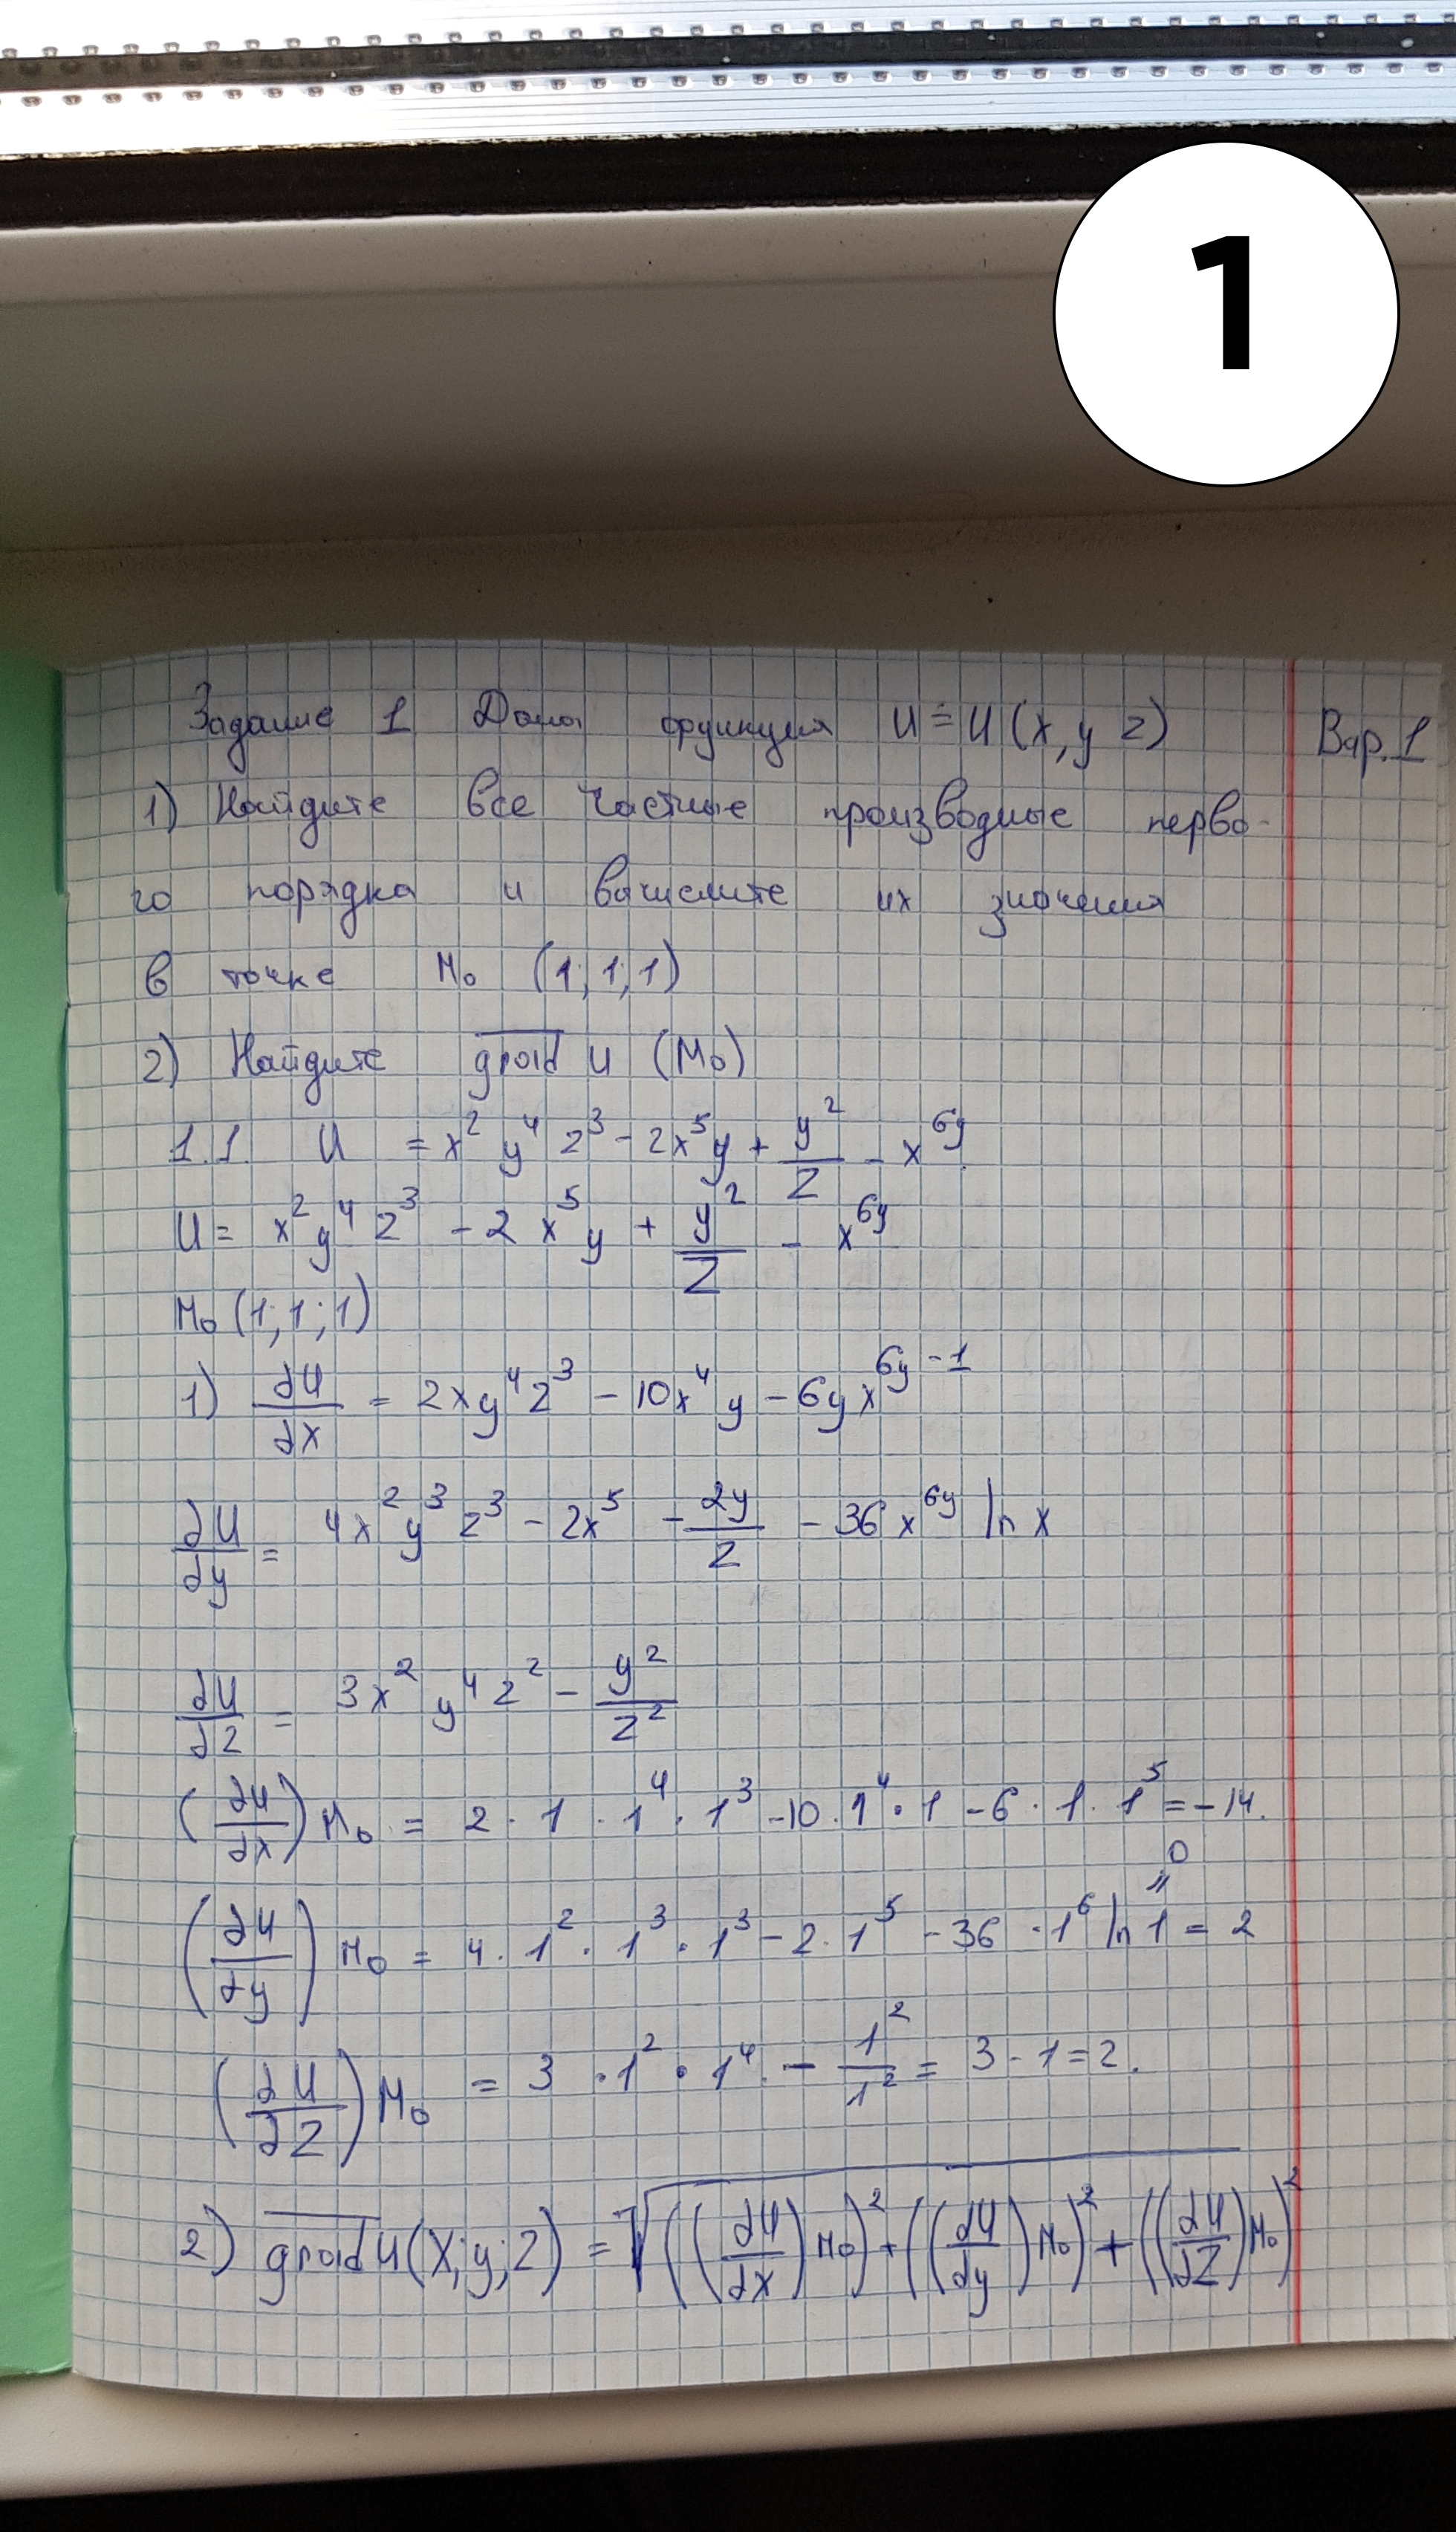 1
Задание 1 Дана функция U = U (x, y z) Вар. 1
1) Найдите все частные производные перво-
го порядка и вычислите их значения
в точке M₀ (1; 1; 1)
2) Найдите grad u (M₀)
1.1. U = x² y⁴ z³ - 2x⁵y + y²/z - x^6y
U = x² y⁴ z³ - 2 x⁵ y + y²/z - x^6y
M₀ (1; 1; 1)
1) ∂U/∂x = 2xy⁴z³ - 10x⁴y - 6yx^6y-1
∂U/∂y = 4x² y³ z³ - 2x⁵ - 2y/z - 36 x^6y ln x
∂U/∂z = 3x² y⁴ z² - y²/z²
(∂u/∂x) M₀ = 2 · 1 · 1⁴ · 1³ - 10 · 1⁴ · 1 - 6 · 1 · 1⁵ = -14.
0
"
(∂u/∂y) M₀ = 4 · 1² · 1³ · 1³ - 2 · 1⁵ - 36 · 1⁶ ln 1 = 2
(∂U/∂z) M₀ = 3 · 1² · 1⁴ · - 1²/1² = 3 - 1 = 2.
2) grad u (x; y; z) = √((∂U/∂x) M₀)² + ((∂U/∂y) M₀)² + ((∂U/∂z) M₀)²